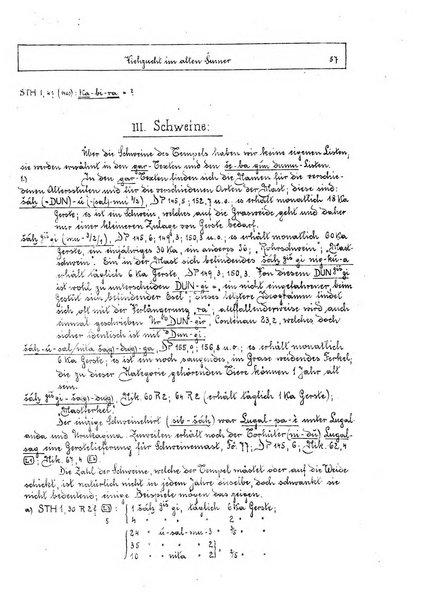 Viehzucht im alten Sumer 57
STH 1, 41 (42): Ka-bi-ra = ?
III. Schweine:
Über die Schweine des Tempels haben wir keine eigenen Listen,
sie werden erwähnt in den gar-Texten und den še-ba gim dumu-Listen.
1)
In den gar-Texten finden sich die Namen für die verschie-
denen Altersstufen und für die verschiedenen Arten der Mast; diese sind:
šáḫ (-DUN)-ú (-sal-mu 3/2), DP 145,5; 152,7 u.o.; es erhält monatlich 18 Ka
Gerste; es ist ein Schwein, welches auf die Grasweide geht und daher
nur einer kleineren Zulage von Gerste bedarf.
šáḫ giš gi (mu-3/2/4), DP 145,6; 149,3; 150,5 u.o.; es erhält monatlich 60 Ka
Gerste, ein einjähriges 30 Ka, ein anderes 36; „Rohrschwein", „Mast-
schwein". Ein in der Mast sich befindendes šáḫ giš gi nig-kú-a
erhält täglich 6 Ka Gerste, DP 149,3; 150,3. Von diesem DUN giš gi
ist wohl zu unterscheiden DUN-gi =, ein nicht eingefahrener, beim
Gestüt sich befindender Esel; dieses letztere Ideogramm findet
sich oft mit der Verlängerung „ra"; auffallenderweise wird auch
einmal geschrieben DUN-gir, Contenau 23,2, welches doch
sicher identisch ist mit Dun-gi.
šáḫ-ú-sal/nita šag-dug-ga, DP 155, 156,8 u.o.; es erhält monatlich
6 Ka Gerste; es ist ein noch saugendes, im Grase weidendes Ferkel;
die zu dieser Kategorie gehörenden Tiere können 1 Jahr alt
sein.
šáḫ giš gi (-šag-dug), Nik. 60 R 2; 64 R 2 (erhält täglich 1 Ka Gerste);
„Mastferkel".
Der einzige Schweinehirt (sib-šáḫ) war Lugal-pa-è unter Lugal-
anda und Urukagina. Zuweilen erhält noch der Torhüter (ni-dü) Lugal-
sag eine Gerstelieferung für Schweinemast, Fö. 77; DP 145, 6; Nik. 62,4
Nik. 67,4
Die Zahl der Schweine, welche der Tempel mästet oder auf die Weide
schickt, ist natürlich nicht in jedem Jahre dieselbe, doch schwankt sie
nicht bedeutend; einige Beispiele mögen das zeigen.
a) STH 1, 30 R 2 : 1 šáḫ giš gi, täglich 6 Ka Gerste;
5 4 " " " 2 " "
24 " ú-sal-mu-3 " 3/5 " ;
35 " " 2
10 " nita 2 " 2/5 " ;